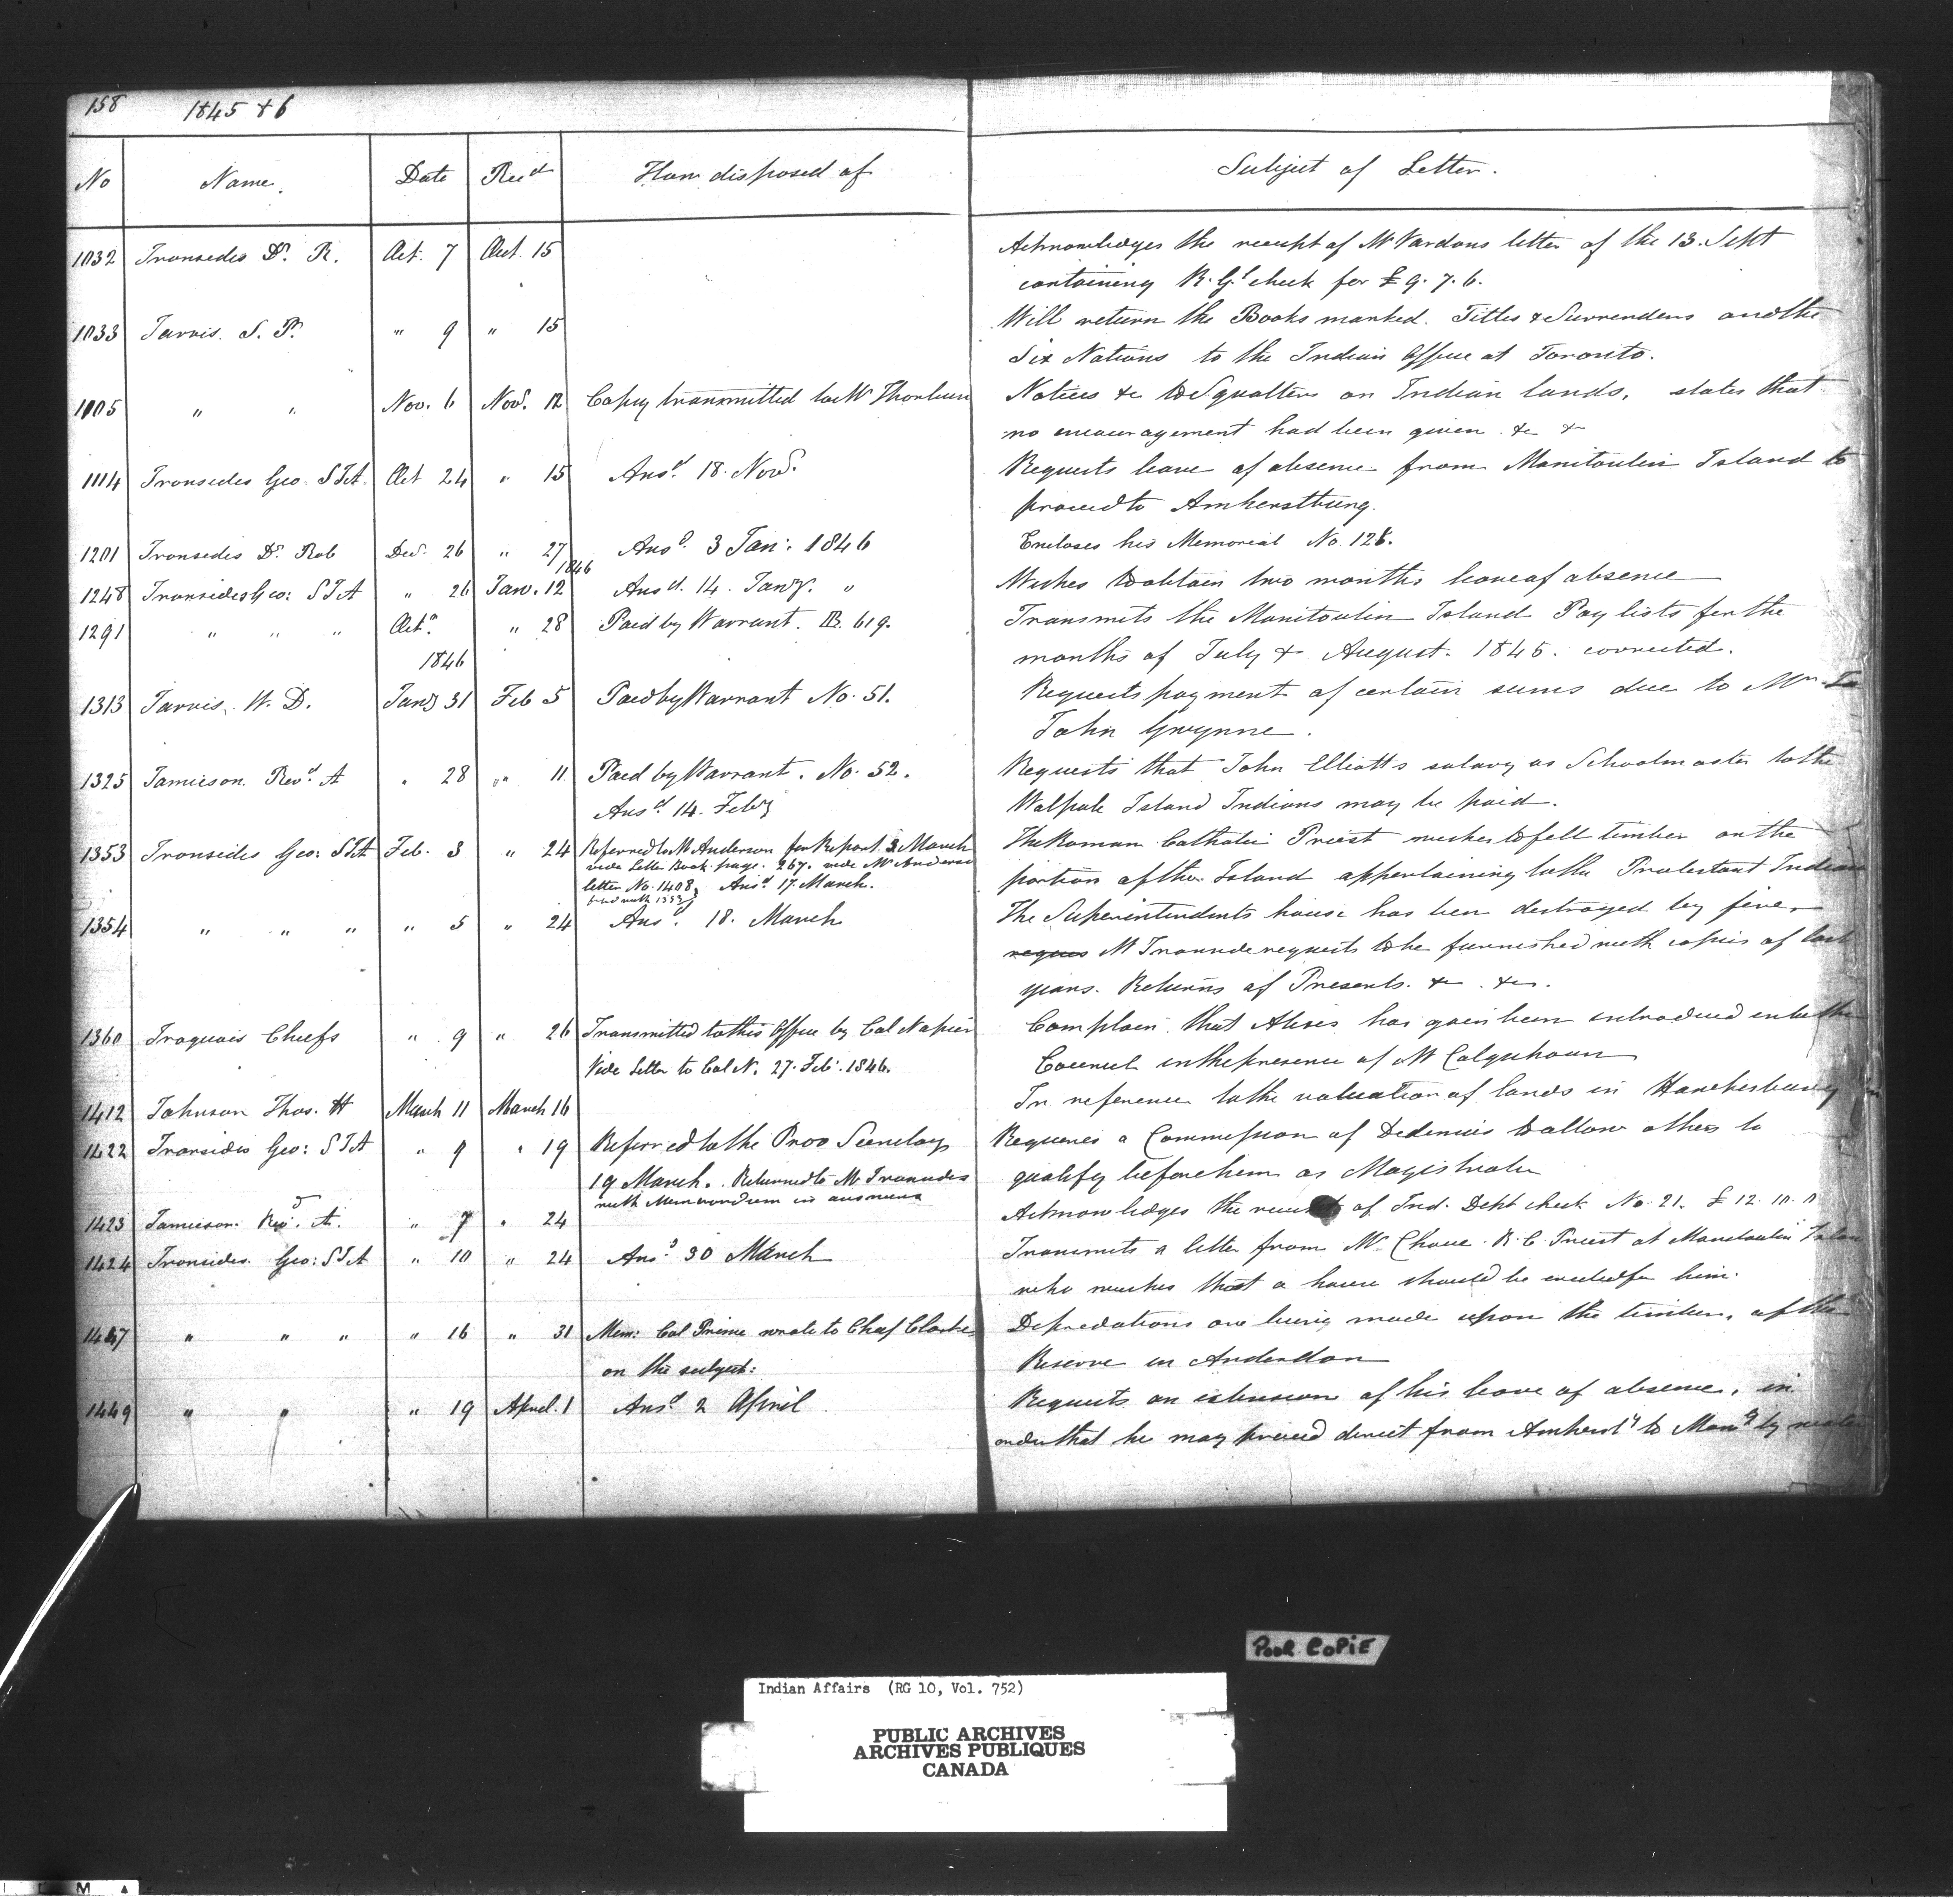 158 1845 & 6
No Name. Date Recd How disposed of Subject of Letter.
1032 Ironsides Dr. R. Oct. 7 Oct. 15 Acknowledges the receipt of Mr Vardons letter of the 13. Sept
containing R. G.s check for £9. 7. 6.
1033 Jarvis. S. P. " 9 " 15 Will return the Books marked. Titles & Surrenders and the
Six Nations to the Indian Office at Toronto.
1105 " " Nov. 6 Novr. 12 Copy transmitted to Mr Thorburn Notices &c to Squatters on Indian lands, states that
no encouragement had been given &c &
1114 Ironsides Geo S I A Oct 24 " 15 Ansd. 18. Novr. Requests leave of absence from Manitoulin Island to
proceed to Amherstburg.
1201 Ironsides Dr. Rob Decr. 26 " 27 Ansd. 3 Jan: 1846 Encloses his Memorial No. 128.
1846
1248 Ironsides Geo: S I A " 26 Jan. 12 Ansd. 14. Jany. " Wishes to obtain two months leave of absence
1291 " " " Octr. " 28 Paid by Warrant. B. 619. Transmits the Manitoulin Island Pay lists for the
1846 months of July & August. 1845. corrected.
1313 Jarvis. W. D. Jany 31 Feb 5 Paid by Warrant No. 51. Requests payment of certain sums due to Mr.
John Gwynne.
1325 Jamieson. Revd. A " 28 " 11 Paid by Warrant. No. 52. Requests that John Elliott's salary as Schoolmaster to the
Ansd. 14. Feby Walpole Island Indians may be paid.
1353 Ironsides Geo: S I A Feb. 3 " 24 Referred to Mr Anderson for Report. 3 March The Roman Catholic Priest wishes to fell timber on the
vide Letter Book page. 267. vide Mr Anderson
letter No. 1408, Ansd. 17. March. portion of the Island appertaining to the Protestant Indian
filed with 1353
1354 " " " " 5 " 24 Ansd. 18. March The Superintendents house has been destroyed by fire,
reques Mr Ironside requests to be furnished with copies of last
years. Returns of Presents. &c. &c.
1360 Iroquois Chiefs " 9 " 26 Transmitted to this Office by Col Napier Complain that Alexis has again been introduced into the
Vide Letter to Col N. 27. Feb. 1846. Council in the presence of Mr Colquhoun
1412 Johnson Thos. H March 11 March 16 In reference to the valuation of lands in Hawkesbury
1422 Ironsides Geo: S I A " 9 " 19 Referred to the Prov Secretary Requires a Commission of Dedimus to allow others to
19 March. Returned to Mr Ironsides qualify before him as Magistrate
with Memorandum in answer
1423 Jamieson Revd. A. " 7 " 24 Acknowledges the receipt of Ind. Dept check No. 21. £12. 10. 0
1424 Ironsides. Geo: S I A " 10 " 24 Ansd. 30 March Transmits a letter from Mr. Chone. R. C. Priest at Manitoulin Islan
who wishes that a house should be erected for him.
1447 " " " " 16 " 31 Mem: Col Prince wrote to Chief Clarke Depredations are being made upon the timber, of the
on the subject: Reserve in Anderdon
1449 " " " 19 April. 1 Ansd. 2 April Requests an extension of his leave of absence, in
order that he may proceed direct from Amherstg to Mang by water
POOR COPIE
Indian Affairs (RG 10, Vol. 752)
PUBLIC ARCHIVES
ARCHIVES PUBLIQUES
CANADA